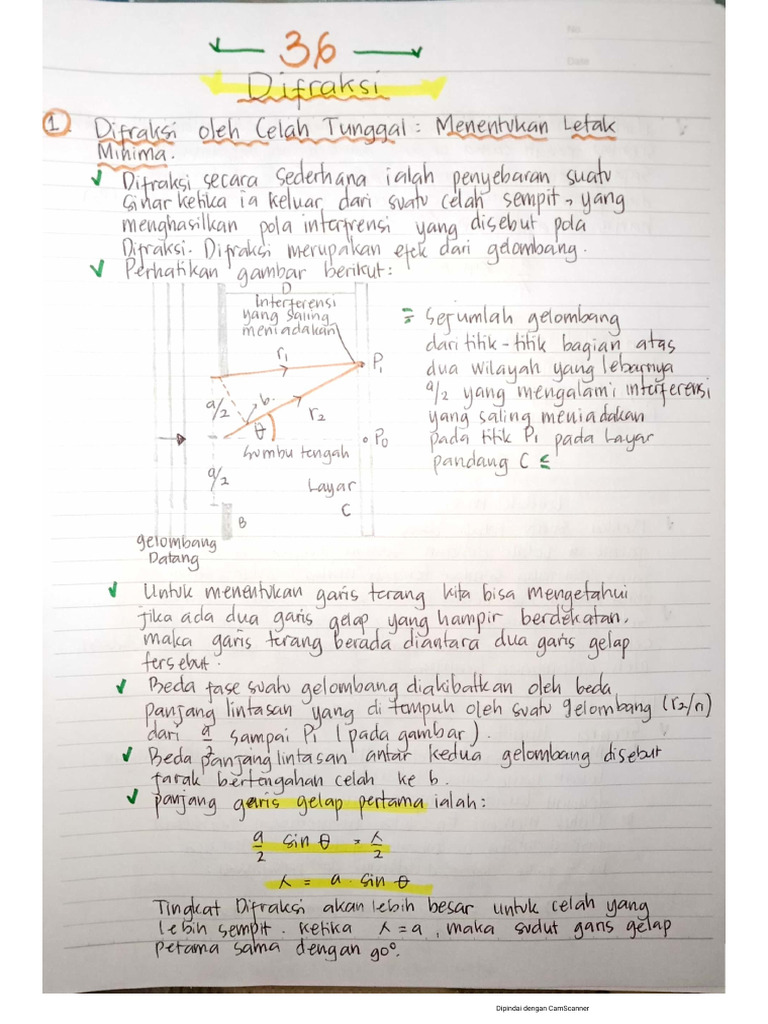 No
Date
36
Difraksi
1 Difraksi oleh Celah Tunggal : Menentukan Letak
Minima.
Difraksi secara sederhana ialah penyebaran suatu
sinar ketika ia keluar dari suatu celah sempit, yang
menghasilkan pola interfrensi yang disebut pola
Difraksi. Difraksi merupakan efek dari gelombang.
Perhatikan gambar berikut:
D
Interferensi
yang saling
meniadakan
r1
P1
a/2
b.
r2
θ
P0
Sumbu tengah
a/2
Layar
C
B
gelombang
Datang
= Sejumlah gelombang
dari titik - titik bagian atas
dua wilayah yang lebarnya
a/2 yang mengalami interferensi
yang saling meniadakan
pada titik P1 pada Layar
pandang C
Untuk menentukan garis terang kita bisa mengetahui
jika ada dua garis gelap yang hampir berdekatan,
maka garis terang berada diantara dua garis gelap
tersebut.
Beda fase suatu gelombang diakibatkan oleh beda
panjang lintasan yang di tempuh oleh suatu gelombang (r2/n)
dari a/2 sampai P1 (pada gambar).
Beda panjang lintasan antar kedua gelombang disebut
jarak bertengahan celah ke b.
panjang garis gelap pertama ialah:
a/2 sin θ = λ/2
λ = a . sin θ
Tingkat Difraksi akan lebih besar untuk celah yang
lebih sempit. Ketika λ = a, maka sudut garis gelap
petama sama dengan 90°.
Dipindai dengan CamScanner